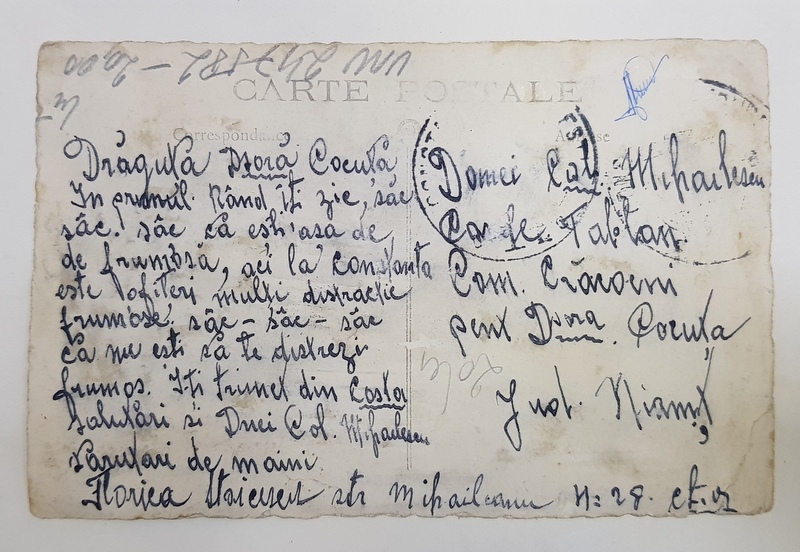 CARTE POSTALE
Correspondance
Drăguța Dșoră Cocuța
In primul Rând îți zic, sâc
sâc. sâc că esti asa de
de frumosă, aci la constanta
este ofiteri multi distractie
frumose, sâc - sâc - sâc
că nu esti să te distrezi
frumos. Iti trimet din Costa
salutări si Dnei Col. Mihailescu
Sarutari de maini
Florica str Mihaileanu N: 28. ct.
Domei Col. Mihailescu
Com. Crăcoeni
pent Dșora. Cocuța
Jud. Niamț